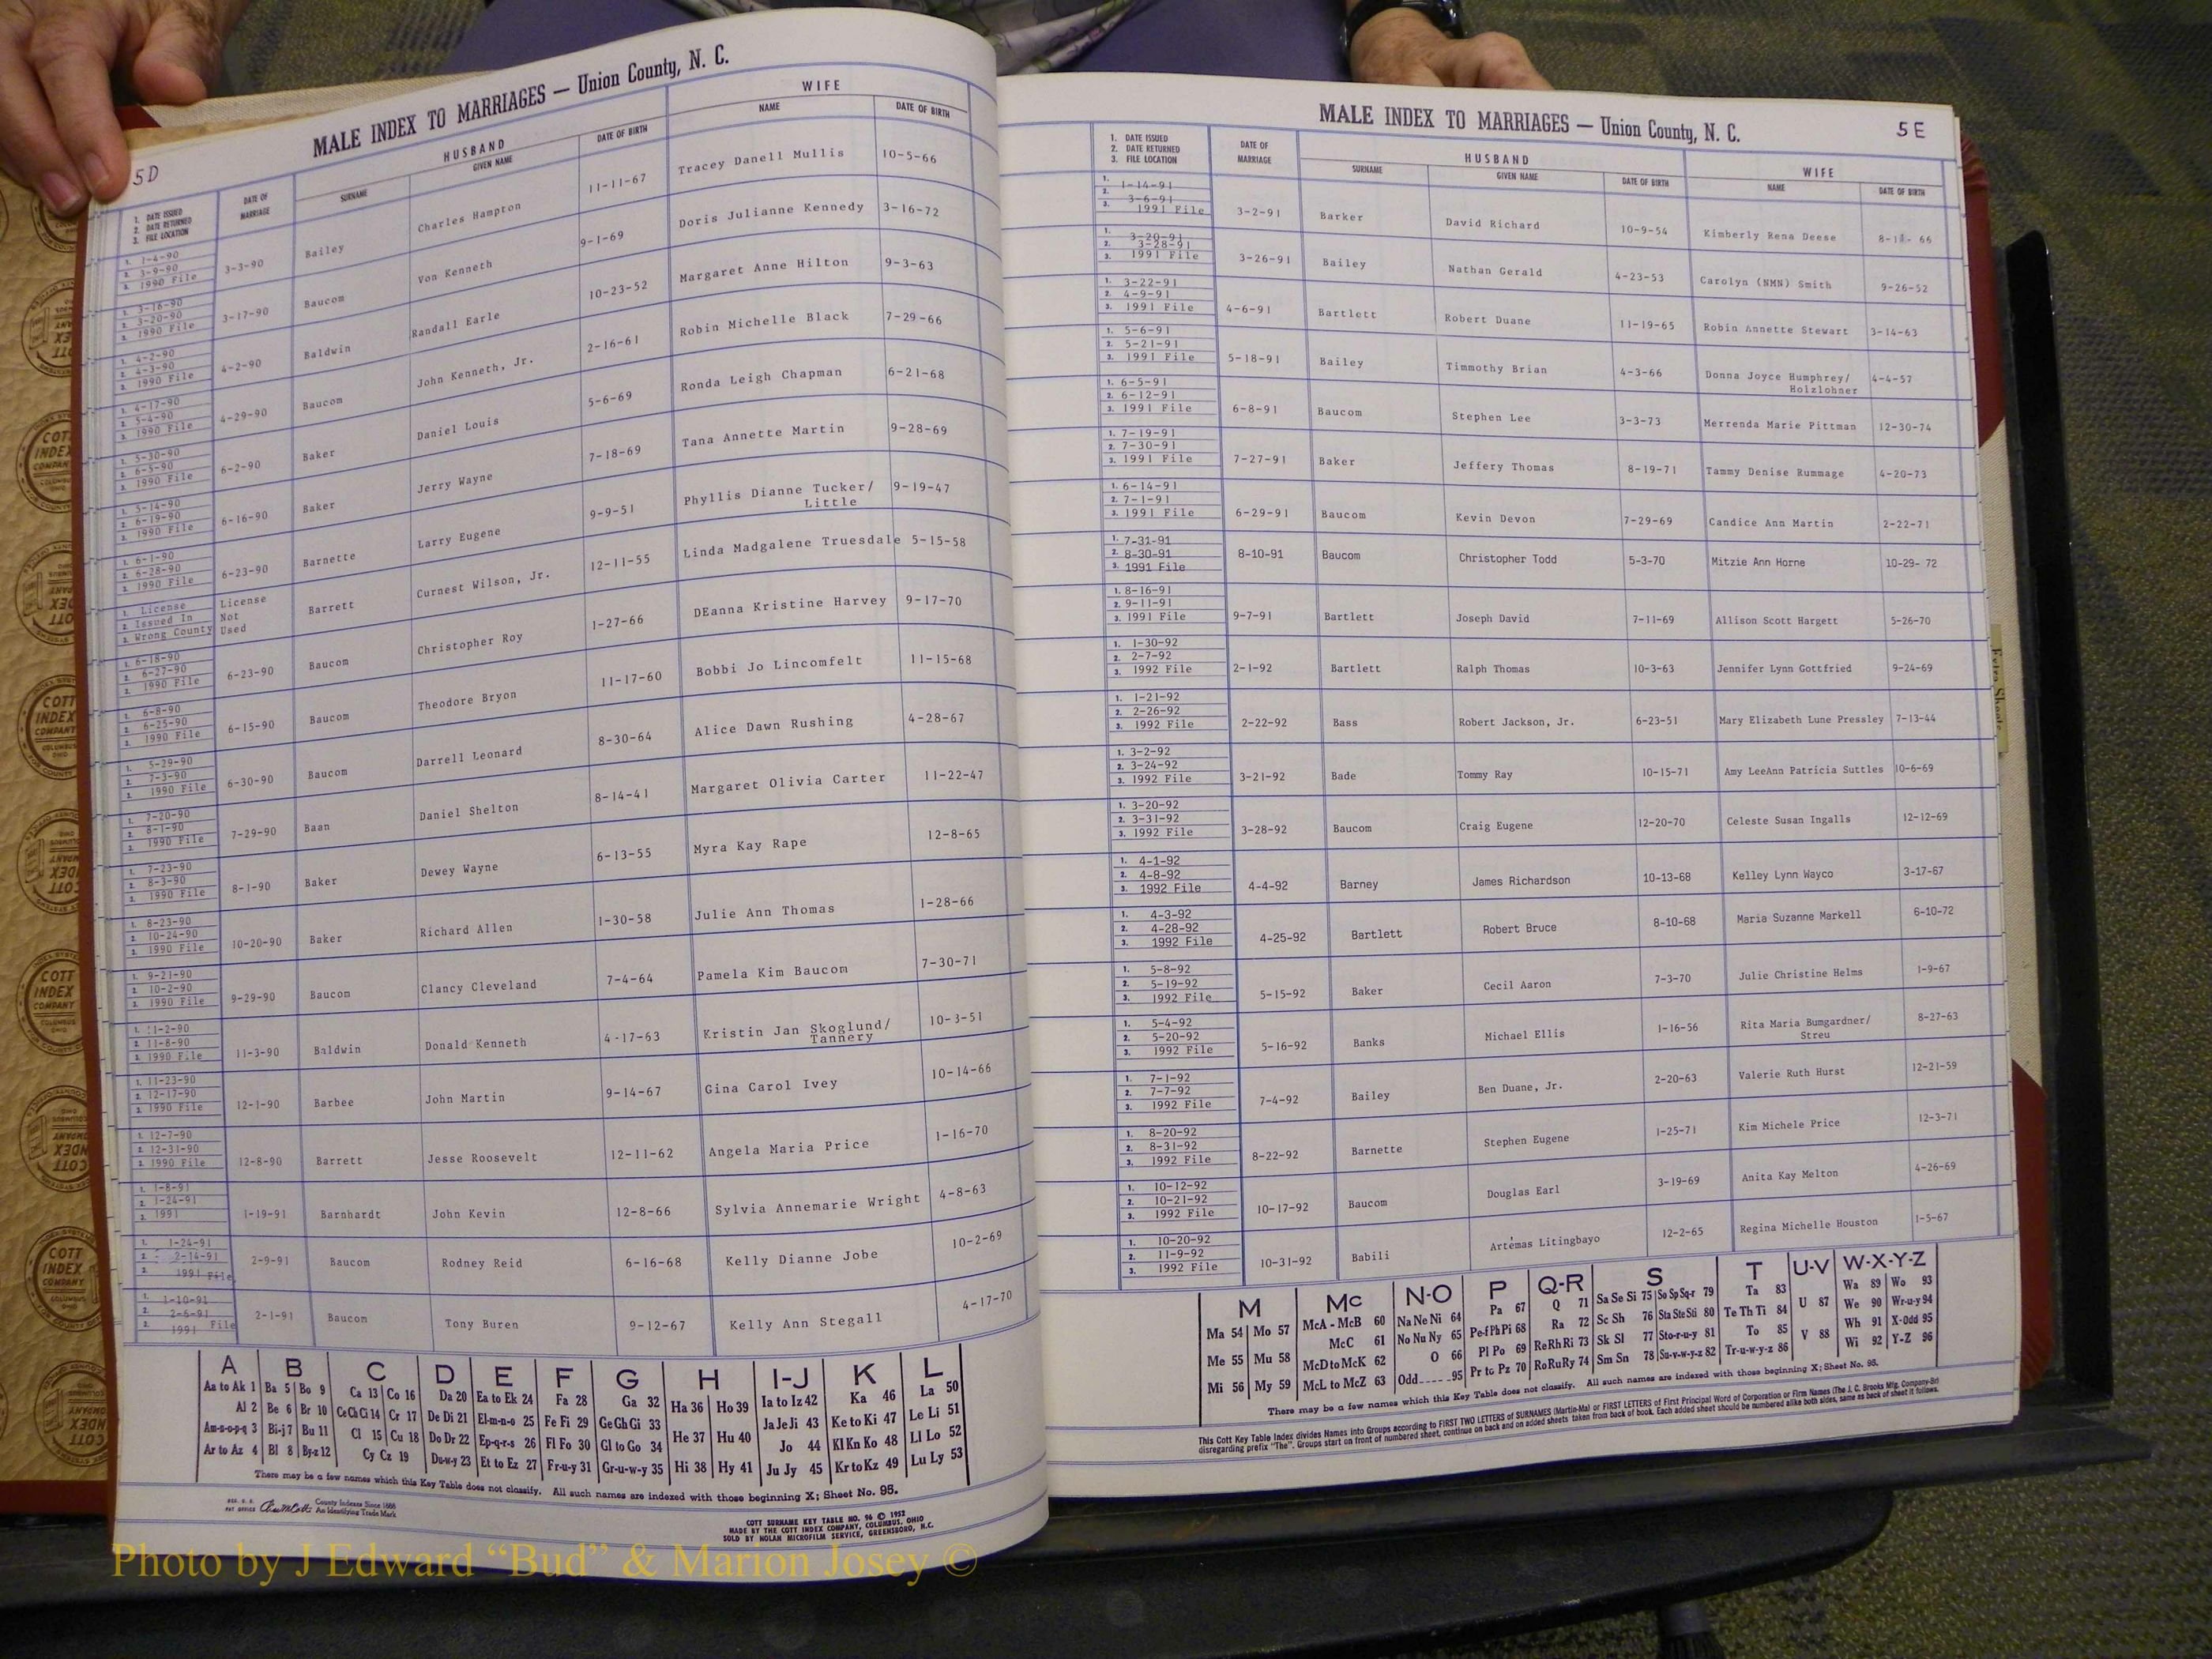 5D
MALE INDEX TO MARRIAGES — Union County, N. C.
1. DATE ISSUED 2. DATE RETURNED 3. FILE LOCATION
DATE OF MARRIAGE
HUSBAND
SURNAME GIVEN NAME DATE OF BIRTH
WIFE
NAME DATE OF BIRTH
1. 1-4-90 2. 3-9-90 3. 1990 File 3-3-90 Bailey Charles Hampton 11-11-67 Tracey Danell Mullis 10-5-66
1. 3-16-90 2. 3-20-90 3. 1990 File 3-17-90 Baucom Von Kenneth 9-1-69 Doris Julianne Kennedy 3-16-72
1. 4-2-90 2. 4-3-90 3. 1990 File 4-2-90 Baldwin Randall Earle 10-23-52 Margaret Anne Hilton 9-3-63
1. 4-17-90 2. 5-4-90 3. 1990 File 4-29-90 Baucom John Kenneth, Jr. 2-16-61 Robin Michelle Black 7-29-66
1. 5-30-90 2. 6-5-90 3. 1990 File 6-2-90 Baker Daniel Louis 5-6-69 Ronda Leigh Chapman 6-21-68
1. 5-14-90 2. 6-19-90 3. 1990 File 6-16-90 Baker Jerry Wayne 7-18-69 Tana Annette Martin 9-28-69
1. 6-1-90 2. 6-28-90 3. 1990 File 6-23-90 Barnette Larry Eugene 9-9-51 Phyllis Dianne Tucker/ Little 9-19-47
1. License 2. Issued In 3. Wrong County License Not Used Barrett Curnest Wilson, Jr. 12-11-55 Linda Madgalene Truesdale 5-15-58
1. 6-18-90 2. 6-27-90 3. 1990 File 6-23-90 Baucom Christopher Roy 1-27-66 DEanna Kristine Harvey 9-17-70
1. 6-8-90 2. 6-25-90 3. 1990 File 6-15-90 Baucom Theodore Bryon 11-17-60 Bobbi Jo Lincomfelt 11-15-68
1. 5-29-90 2. 7-3-90 3. 1990 File 6-30-90 Baucom Darrell Leonard 8-30-64 Alice Dawn Rushing 4-28-67
1. 7-20-90 2. 8-1-90 3. 1990 File 7-29-90 Baan Daniel Shelton 8-14-41 Margaret Olivia Carter 11-22-47
1. 7-23-90 2. 8-3-90 3. 1990 File 8-1-90 Baker Dewey Wayne 6-13-55 Myra Kay Rape 12-8-65
1. 8-23-90 2. 10-24-90 3. 1990 File 10-20-90 Baker Richard Allen 1-30-58 Julie Ann Thomas 1-28-66
1. 9-21-90 2. 10-2-90 3. 1990 File 9-29-90 Baucom Clancy Cleveland 7-4-64 Pamela Kim Baucom 7-30-71
1. 11-2-90 2. 11-8-90 3. 1990 File 11-3-90 Baldwin Donald Kenneth 4-17-63 Kristin Jan Skoglund/ Tannery 10-3-51
1. 11-23-90 2. 12-17-90 3. 1990 File 12-1-90 Barbee John Martin 9-14-67 Gina Carol Ivey 10-14-66
1. 12-7-90 2. 12-31-90 3. 1990 File 12-8-90 Barrett Jesse Roosevelt 12-11-62 Angela Maria Price 1-16-70
1. 1-8-91 2. 1-24-91 3. 1991 1-19-91 Barnhardt John Kevin 12-8-66 Sylvia Annemarie Wright 4-8-63
1. 1-24-91 2. 2-14-91 3. 1991 File 2-9-91 Baucom Rodney Reid 6-16-68 Kelly Dianne Jobe 10-2-69
1. 1-10-91 2. 2-6-91 3. 1991 File 2-1-91 Baucom Tony Buren 9-12-67 Kelly Ann Stegall 4-17-70
A B C D E F G H I-J K L
Aa to Ak 1 Ba 5 Bo 9 Ca 13 Co 16 Da 20 Ea to Ek 24 Fa 28 Ga 32 Ha 36 Ho 39 Ia to Iz 42 Ka 46 La 50
Al 2 Be 6 Br 10 Ce Ch Ci 14 Cr 17 De Di 21 El-m-n-o 25 Fe Fi 29 Ge Gh Gi 33 He 37 Hu 40 Ja Je Ji 43 Ke to Ki 47 Le Li 51
Am-n-o-p-q 3 Bi-j 7 Bu 11 Cl 15 Cu 18 Do Dr 22 Ep-q-r-s 26 Fl Fo 30 Gl to Go 34 Jo 44 Kl Kn Ko 48 Ll Lo 52
Ar to Az 4 Bl 8 By-z 12 Cy Cz 19 Du-w-y 23 Et to Ez 27 Fr-u-y 31 Gr-u-w-y 35 Hi 38 Hy 41 Ju Jy 45 Kr to Kz 49 Lu Ly 53
There may be a few names which this Key Table does not classify. All such names are indexed with those beginning X; Sheet No. 95.
REG. U. S. PAT OFFICE County Indexes Since 1888 An Identifying Trade Mark
COTT SURNAME KEY TABLE NO. 96 © 1952
MADE BY THE COTT INDEX COMPANY, COLUMBUS, OHIO
SOLD BY NOLAN MICROFILM SERVICE, GREENSBORO, N.C.
MALE INDEX TO MARRIAGES — Union County, N. C.
5E
1. DATE ISSUED 2. DATE RETURNED 3. FILE LOCATION
DATE OF MARRIAGE
HUSBAND
SURNAME GIVEN NAME DATE OF BIRTH
WIFE
NAME DATE OF BIRTH
1. 1-14-91 2. 3-6-91 3. 1991 File 3-2-91 Barker David Richard 10-9-54 Kimberly Rena Deese
1. 3-20-91 2. 3-28-91 3. 1991 File 3-26-91 Bailey Nathan Gerald 4-23-53 Carolyn (NMN) Smith 9-26-52
1. 3-22-91 2. 4-9-91 3. 1991 File 4-6-91 Bartlett Robert Duane 11-19-65 Robin Annette Stewart 3-14-63
1. 5-6-91 2. 5-21-91 3. 1991 File 5-18-91 Bailey Timmothy Brian 4-3-66 Donna Joyce Humphrey/ Holzlohner 4-4-57
1. 6-5-91 2. 6-12-91 3. 1991 File 6-8-91 Baucom Stephen Lee 3-3-73 Merrenda Marie Pittman 12-30-74
1. 7-19-91 2. 7-30-91 3. 1991 File 7-27-91 Baker Jeffery Thomas 8-19-71 Tammy Denise Rummage 4-20-73
1. 6-14-91 2. 7-1-91 3. 1991 File 6-29-91 Baucom Kevin Devon 7-29-69 Candice Ann Martin 2-22-71
1. 7-31-91 2. 8-30-91 3. 1991 File 8-10-91 Baucom Christopher Todd 5-3-70 Mitzie Ann Horne 10-29- 72
1. 8-16-91 2. 9-11-91 3. 1991 File 9-7-91 Bartlett Joseph David 7-11-69 Allison Scott Hargett 5-26-70
1. 1-30-92 2. 2-7-92 3. 1992 File 2-1-92 Bartlett Ralph Thomas 10-3-63 Jennifer Lynn Gottfried 9-24-69
1. 1-21-92 2. 2-26-92 3. 1992 File 2-22-92 Bass Robert Jackson, Jr. 6-23-51 Mary Elizabeth Lune Pressley 7-13-44
1. 3-2-92 2. 3-24-92 3. 1992 File 3-21-92 Bade Tommy Ray 10-15-71 Amy LeeAnn Patricia Suttles 10-6-69
1. 3-20-92 2. 3-31-92 3. 1992 File 3-28-92 Baucom Craig Eugene 12-20-70 Celeste Susan Ingalls 12-12-69
1. 4-1-92 2. 4-8-92 3. 1992 File 4-4-92 Barney James Richardson 10-13-68 Kelley Lynn Wayco 3-17-67
1. 4-3-92 2. 4-28-92 3. 1992 File 4-25-92 Bartlett Robert Bruce 8-10-68 Maria Suzanne Markell 6-10-72
1. 5-8-92 2. 5-19-92 3. 1992 File 5-15-92 Baker Cecil Aaron 7-3-70 Julie Christine Helms 1-9-67
1. 5-4-92 2. 5-20-92 3. 1992 File 5-16-92 Banks Michael Ellis 1-16-56 Rita Maria Bumgardner/ Streu 8-27-63
1. 7-1-92 2. 7-7-92 3. 1992 File 7-4-92 Bailey Ben Duane, Jr. 2-20-63 Valerie Ruth Hurst 12-21-59
1. 8-20-92 2. 8-31-92 3. 1992 File 8-22-92 Barnette Stephen Eugene 1-25-71 Kim Michele Price 12-3-71
1. 10-12-92 2. 10-21-92 3. 1992 File 10-17-92 Baucom Douglas Earl 3-19-69 Anita Kay Melton 4-26-69
1. 10-20-92 2. 11-9-92 3. 1992 File 10-31-92 Babili Artemas Litingbayo 12-2-65 Regina Michelle Houston 1-5-67
M Mc N-O P Q-R S T U-V W-X-Y-Z
Ma 54 Mo 57 McA - McB 60 Na Ne Ni 64 Pa 67 Q 71 Sa Se Si 75 So Sp Sq-r 79 Ta 83 U 87 Wa 89 Wo 93
Me 55 Mu 58 McC 61 No Nu Ny 65 Pe-f Ph Pi 68 Ra 72 Sc Sh 76 Sta Ste Sti 80 Te Th Ti 84 V 88 We 90 Wr-u-y 94
McD to McK 62 O 66 Pl Po 69 Re Rh Ri 73 Sk Sl 77 Sto-r-u-y 81 To 85 Wh 91 X-Odd 95
Mi 56 My 59 McL to McZ 63 Odd 95 Pr to Pz 70 Ro Ru Ry 74 Sm Sn 78 Su-v-w-y-z 82 Tr-u-w-y-z 86 Wi 92 Y-Z 96
There may be a few names which this Key Table does not classify. All such names are indexed with those beginning X; Sheet No. 95.
This Cott Key Table Index divides Names into Groups according to FIRST TWO LETTERS of SURNAMES (Martin-Ma) or FIRST LETTERS of First Principal Word of Corporation or Firm Names (The J. C. Brooks Mfg. Company-Br)
disregarding prefix "The". Groups start on front of numbered sheet, continue on back and on added sheets taken from back of book. Each added sheet should be numbered alike both sides, same as back of sheet it follows.
COTT INDEX COMPANY
Photo by J Edward “Bud” & Marion Josey ©